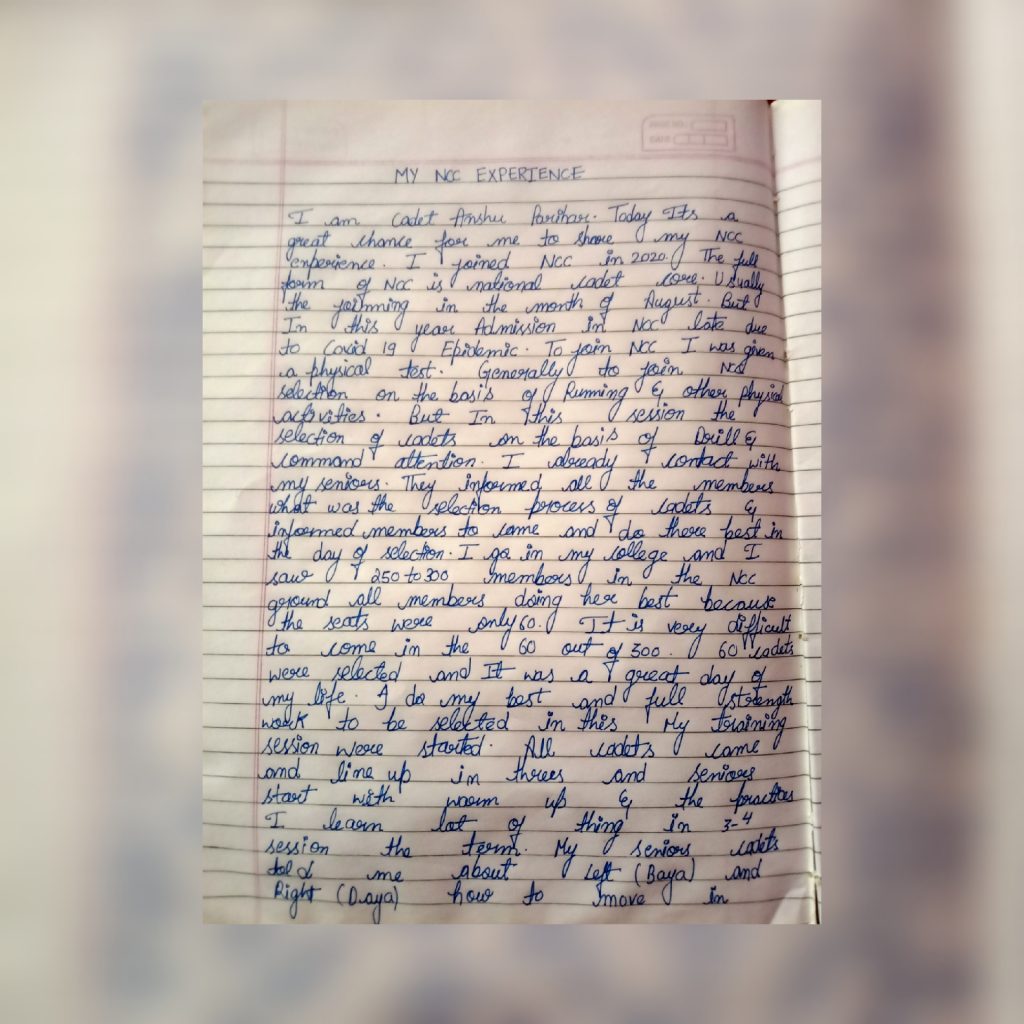 MY NCC EXPERIENCE
I am Cadet Anshu Parihar. Today Its a
great chance for me to share my NCC
experience. I joined NCC in 2020. The full
form of NCC is national cadet core. Usually
the joinning in the month of August. But
In this year Admission in NCC late due
to Covid 19 Epidemic. To join NCC I was given
a physical test. Generally to join NCC
selection on the basis of Running & other physical
activities. But In this session the
selection of cadets on the basis of Drill &
command attention. I already contact with
my seniors. They informed all the members
what was the selection process of cadets &
informed members to come and do there best in
the day of selection. I go in my college and I
saw 250 to 300 members in the NCC
ground all members doing her best because
the seats were only 60. It is very difficult
to come in the 60 out of 300. 60 cadets
were selected and It was a great day of
my life. I do my best and full strength
work to be selected in this My training
session were started. All cadets came
and line up in threes and seniors
start with warm up & the practies
I learn lot of thing in 3-4
session the term. My seniors cadets
told me about Left (Baya) and
Right (Daya) how to move in